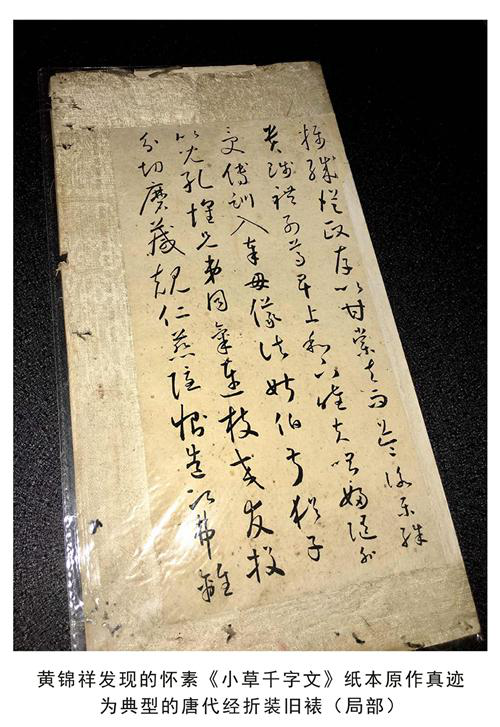 攝職從政存以甘棠去而益詠樂殊
貴賤禮別尊卑上和下睦夫唱婦隨外
受傅訓入奉母儀諸姑伯叔猶子
比兒孔懷兄弟同氣連枝交友投
分切磨箴規仁慈隱惻造次弗離
黄锦祥发现的怀素《小草千字文》纸本原作真迹
为典型的唐代经折装旧裱（局部）